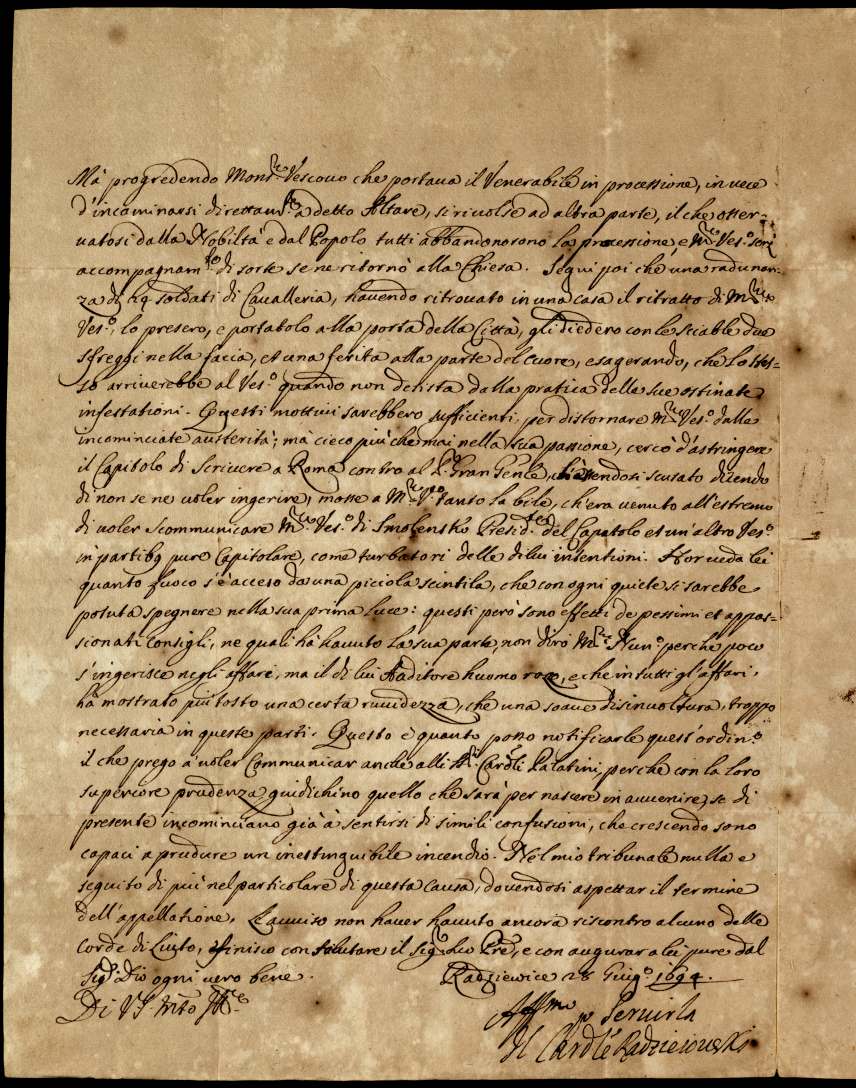 Mà progredendo Monsre Vescouo che portaua il Venerabile in processione, in uece
d'incaminarsi direttamte à detto Altare, si riuolse ad altra parte, il che osser-
uatosi dalla Nobiltà e dal Popolo tutti abbandonorono la processione, e Mre Veso
accompagnamto di sorte se ne ritornò alla Chiesa. Seguì poi che una radunan-
za di soldati di Caualleria, hauendo ritrouato in una casa il ritratto di Mre
Veso, lo presero, e portatolo alla porta della Città, gli diedero con le sciable due
sfreggi nella facia, et una ferita alla parte del cuore, esagerando, che lo stes-
so arriuerebbe al Veso quando non desista dalla pratica delle sue ostinate
infestationi. Questi mottiui sarebbero sufficienti per distornare Mre Veso dalle
incominciate austerità; mà cieco più che mai nella sua passione, cercò d'astringere
il Capitolo di Scriuere a Roma contro al Sr Gran Genle, scusato dicendo
di non se ne uoler ingerire, mosse a Mre Vo tanto la bile, ch'era uenuto all'estremo
di uoler Scommunicare Mre Veso di Smolensko Presidte del Capitolo et un'altro Veso
in partibq pure Capitolare, come turbatori delle di lui intentioni. Hor ueda lei
quanto fuoco s'è acceso da una piciola scintila, che con ogni quiete si sarebbe
potuta spegnere nella sua prima luce: questi però sono effetti de pessimi et appas-
sionati consigli, ne quali hà hauuto la sua parte, non dirò Mre Nuno perche poco
s'ingerisce negli affari, ma il di lui Auditore huomo rozo, e che in tutti gl'affari,
hà mostrato più tosto una certa ruuidezza, che una soaue disinuoltura, troppo
necessaria in queste parti. Questo è quanto posso notificarle quest'ordino
il che prego à uoler Communicar anche alli Sri Cardli Palatini, perche con la loro
superiore prudenza guidichino quello che sarà per nascere in auuenire, se di
presente incominciano già à sentirsi di simili confusioni, che crescendo sono
capaci a prudure un inestinguibile incendio. Nel mio tribunale nulla e
seguito di più nel particolare di questa causa, douendosi aspettar il termine
dell'appellatione. L'auuiso non hauer hauuto ancora riscontro alcuno delle
corde di Liuto, e finisco con salutare il Sigr suo Pre, e con augurar a lei pure dal
Sigr Dio ogni uero bene. Radziewice 28 Giugo 1694.
Di V.S. Illre
Affmo p Seruirla
Il Cardle Radzieiouski